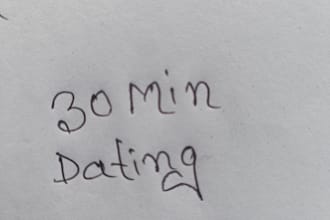 30 Min
Dating